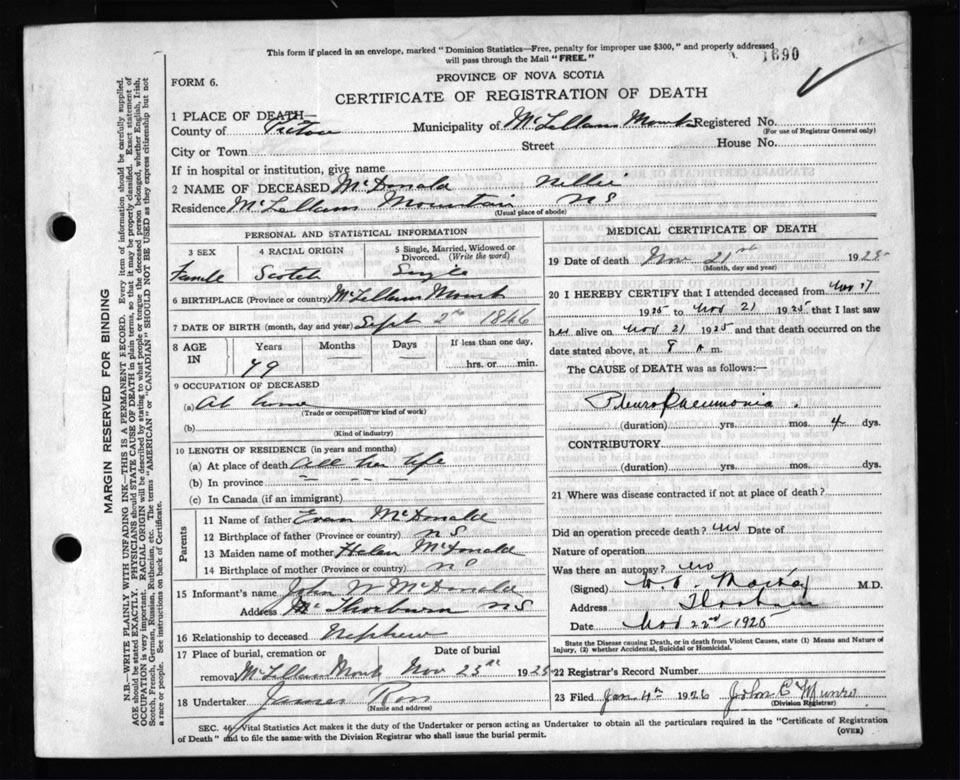 This form if placed in an envelope, marked "Dominion Statistics—Free, penalty for improper use $300," and properly addressed
will pass through the Mail "FREE."
1690
FORM 6.
PROVINCE OF NOVA SCOTIA
CERTIFICATE OF REGISTRATION OF DEATH
1 PLACE OF DEATH—
County of Pictou Municipality of McLellans Mount Registered No.
(For use of Registrar General only)
City or Town Street House No.
If in hospital or institution, give name
2 NAME OF DECEASED McDonald Nellie
Residence McLellans Mountain NS
(Usual place of abode)
PERSONAL AND STATISTICAL INFORMATION
3 SEX 4 RACIAL ORIGIN 5 Single, Married, Widowed or Divorced. (Write the word)
Female Scotch Single
6 BIRTHPLACE (Province or country) McLellans Mount
7 DATE OF BIRTH (month, day and year) Sept 2nd 1846
8 AGE IN Years Months Days If less than one day,
79 hrs. or min.
9 OCCUPATION OF DECEASED
(a) At home
(Trade or occupation or kind of work)
(b)
(Kind of industry)
10 LENGTH OF RESIDENCE (in years and months)
(a) At place of death all her life
(b) In province — — — —
(c) In Canada (if an immigrant)
Parents
11 Name of father Evan McDonald
12 Birthplace of father (Province or country) NS
13 Maiden name of mother Helen McDonald
14 Birthplace of mother (Province or country) NS
15 Informant's name John W McDonald
Address Thorburn NS
16 Relationship to deceased Nephew
17 Place of burial, cremation or removal Date of burial
McLellans Mount Nov 23rd 1925
18 Undertaker James Ross
(Name and address)
MEDICAL CERTIFICATE OF DEATH
19 Date of death Nov 21st 1925
(Month, day and year)
20 I HEREBY CERTIFY that I attended deceased from Nov 17
1925 to Nov 21 1925 that I last saw
her alive on Nov 21 1925 and that death occurred on the
date stated above, at 9 A m.
The CAUSE OF DEATH was as follows:—
Pleuro Pneumonia
(duration) yrs. mos. 4 dys.
CONTRIBUTORY
(duration) yrs. mos. dys.
21 Where was disease contracted if not at place of death?
Did an operation precede death? no Date of
Nature of operation
Was there an autopsy? no
(Signed) M.D.
Address Thorburn
Date Nov 22nd 1925
State the Disease causing Death, or in death from Violent Causes, state (1) Means and Nature of
Injury, (2) whether Accidental, Suicidal or Homicidal.
22 Registrar's Record Number
23 Filed Jan 4th 1926 John C Munro
(Division Registrar)
SEC. 46 Vital Statistics Act makes it the duty of the Undertaker or person acting as Undertaker to obtain all the particulars required in the "Certificate of Registration
of Death" and to file the same with the Division Registrar who shall issue the burial permit.
(OVER)
MARGIN RESERVED FOR BINDING
N.B.—WRITE PLAINLY WITH UNFADING INK—THIS IS A PERMANENT RECORD. Every item of information should be carefully supplied.
AGE should be stated EXACTLY. PHYSICIANS should STATE CAUSE OF DEATH in plain terms, so that it may be properly classified. Exact statement of
OCCUPATION is very important. RACIAL ORIGIN will be described by stating to what people or tongue the deceased person belonged, whether English, Irish,
Scotch, French, German, Russian, Ruthenian, etc. The terms "AMERICAN" or "CANADIAN" SHOULD NOT BE USED as they express citizenship but not
a race or people. See instructions on back of Certificate.